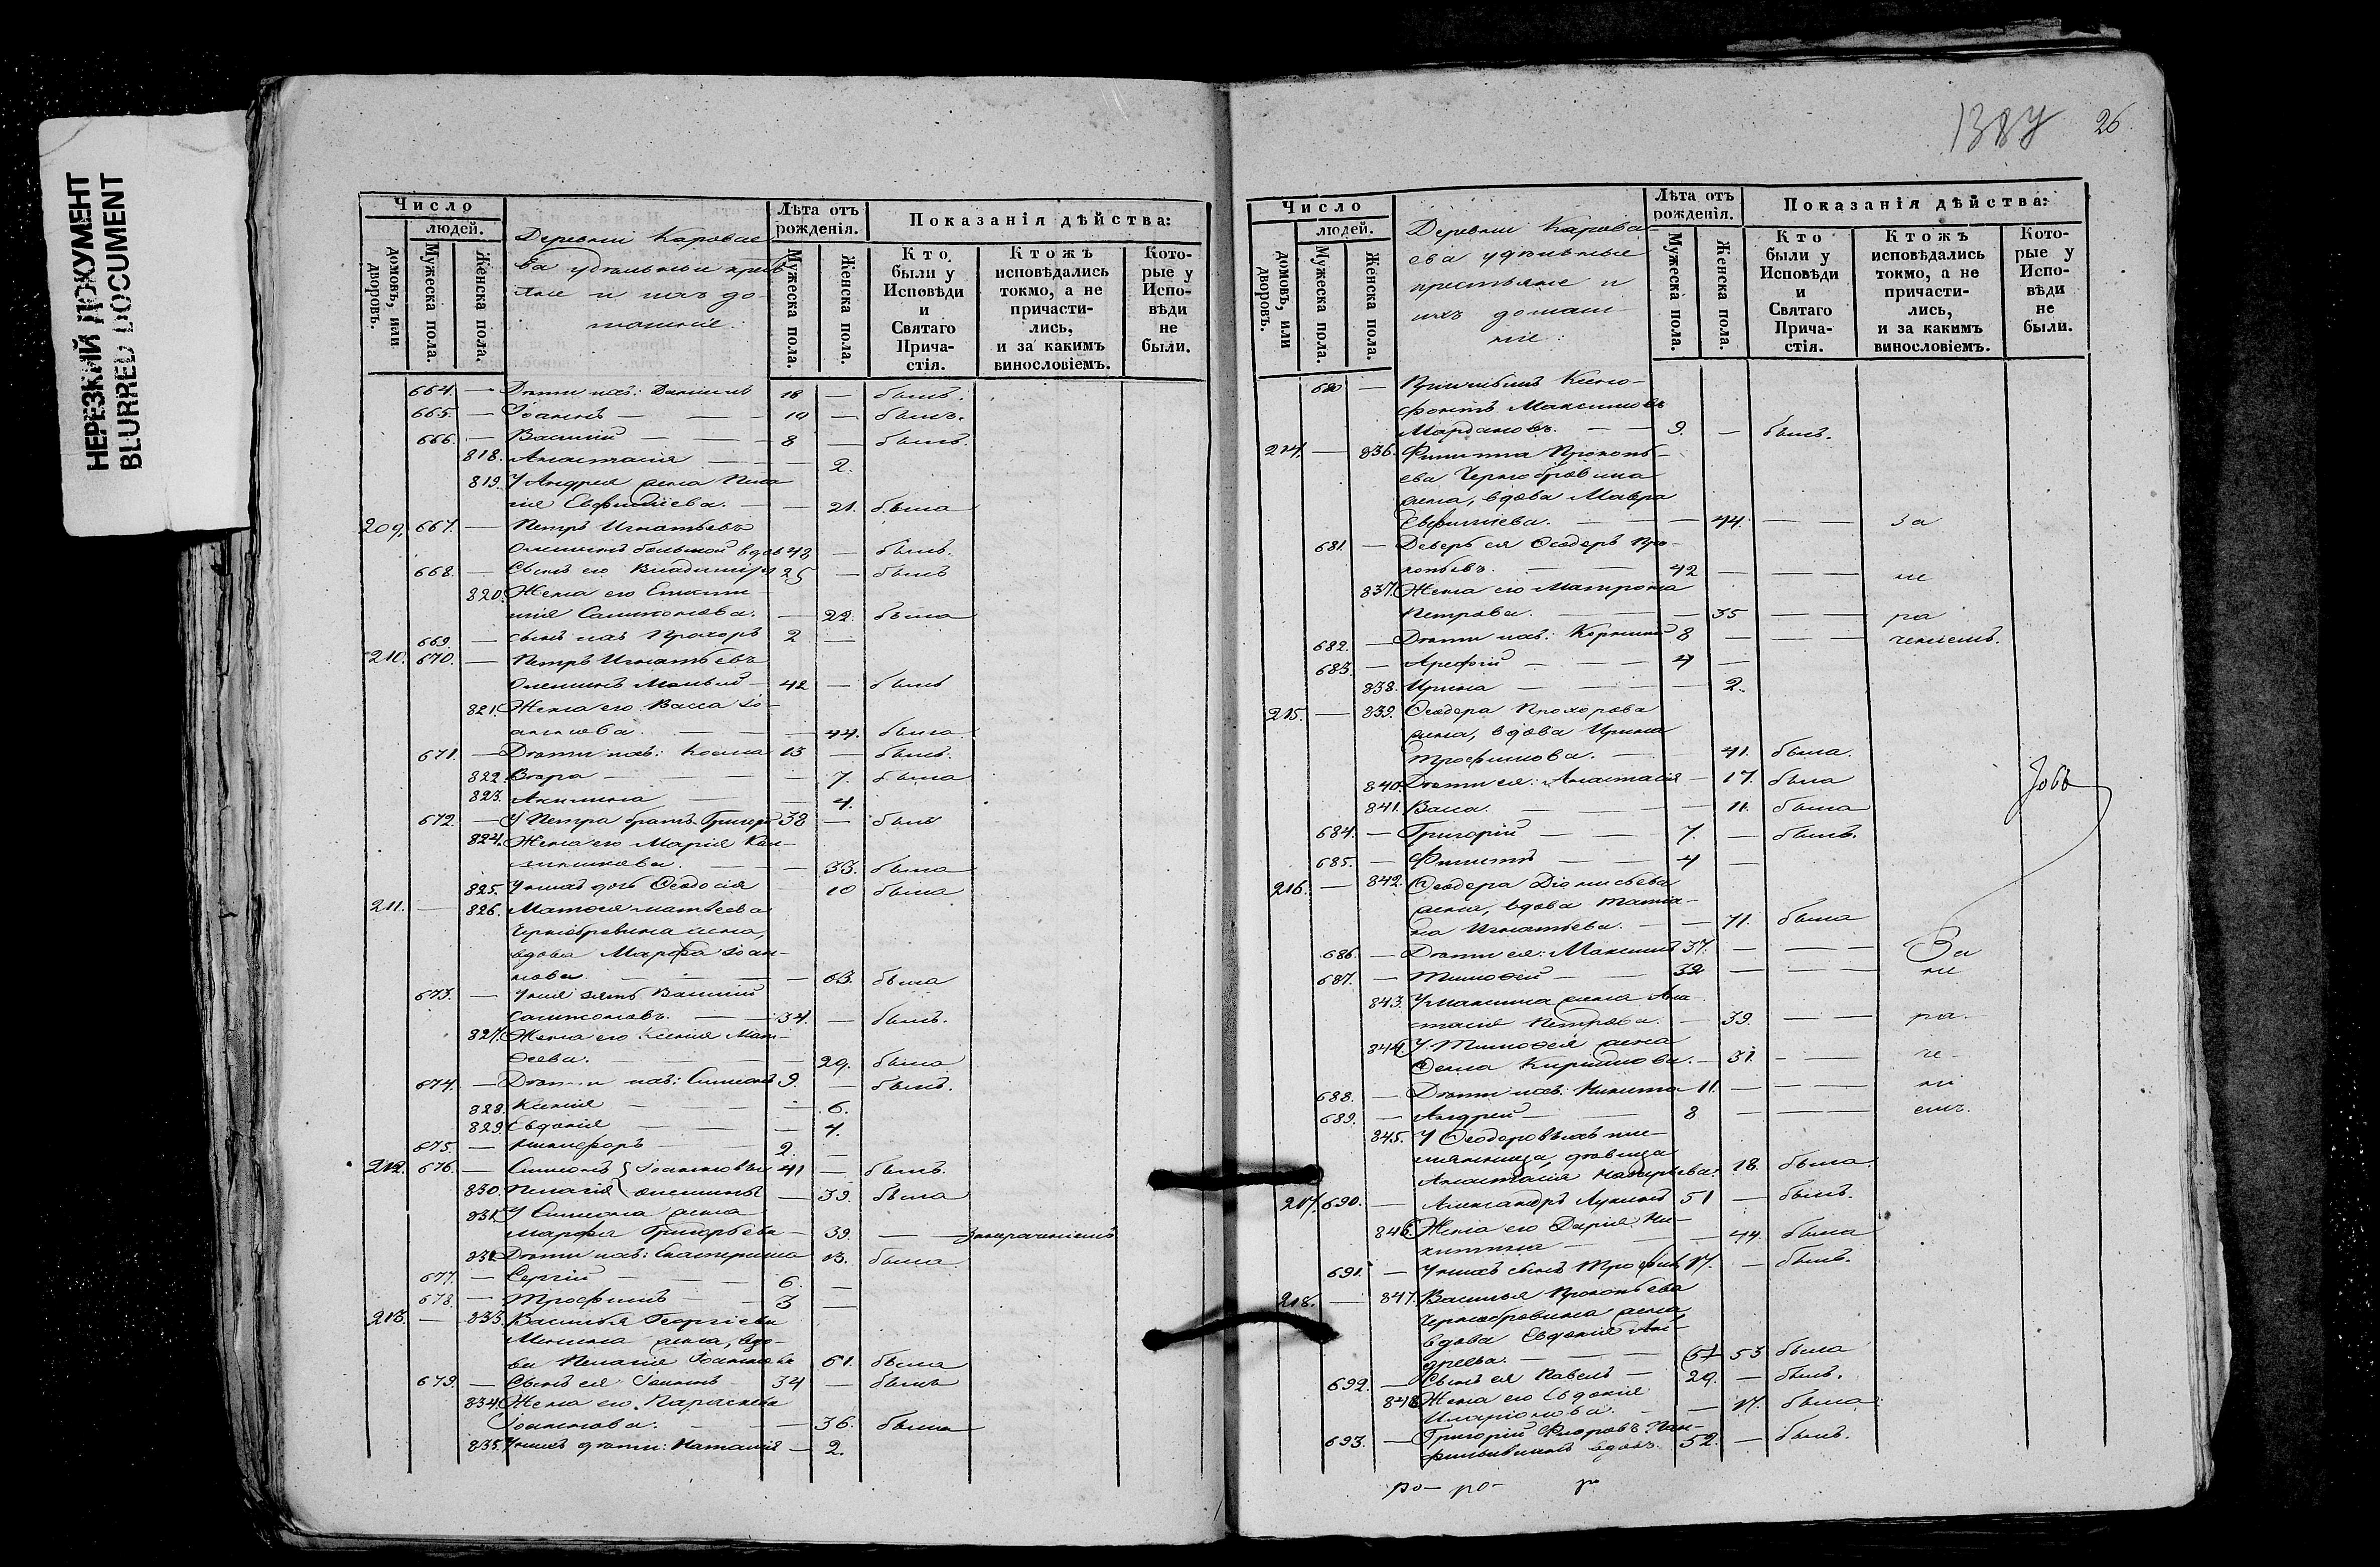 НЕРЕЗКИЙ ДОКУМЕНТ
BLURRED DOCUMENT
Число
людей.
домовъ, или дворовъ.
Мужеска пола.
Женска пола.
Деревни Каровае
ва удѣльные крестъ
яне и ихъ до-
машніе:
Лѣта отъ рожденія.
Мужеска пола.
Женска пола.
Показанія дѣйства:
Кто были у Исповѣди и Святаго Прича-стія.
Ктожъ исповѣдались токмо, а не причасти-лись, и за какимъ винословіемъ.
Кото-рые у Испо-вѣди не были.
664. — Дѣти ихъ: Даніилъ 18 — былъ.
665. — Іоаннъ — 10 — былъ.
666. — Василій — 8 — былъ.
818. Анастасія — 2.
819. У Андрея жена Пела
гія Евфиміева. — 21. была
209. 667. — Петръ Игнатьевъ
большой вдов 48 — былъ.
668. — Сынъ его Владиміръ 25 — былъ
820. Жена его
нія Самсонова. — 22. была
669. — сынъ ихъ Прохоръ 2 —
210. 670. — Петръ Игнатьевъ
Малый — 42 — былъ
821. Жена его Васса Іо-
аннова. — 44. была.
671. — Дѣти ихъ: Косма 13 — былъ.
822. Вѣра — 7. была
823. Акилина — 4.
672. — У Петра братъ Григорій 38 — былъ
824. Жена его Марія Кал-
линикова. — 33. была
825. У нихъ дочь Ѳеодосія 10 была
211. — 826. Матѳея Матѳеева
Чернобровина жена,
вдова Марѳа Іоан-
нова. — 63. была
673. — У нея зять Василій
Самсоновъ. — 34. — былъ.
827. Жена его Ксенія Мат-
ѳеева. — 29. была
674. — Дѣти ихъ: Симеонъ 9. — былъ.
828. Ксенія — 6.
829. Евдокія — 4.
675. — Никифоръ — 2. —
212. 676. — Симеонъ } Іоанновы 41 — былъ.
830. Пелагія } — 39. была
831. У Симеона жена
Марѳа Григорьева — 39. — За нераченіемъ
832. Дѣти ихъ: Екатерина 13. была
677. — Сергій — 6. —
678. — Трофимъ — 3 —
213. — 833. Василья Георгіева
Минина жена, вдо-
ва Пелагія Іоаннова 61. была
679. — Сынъ ея Іоаннъ 34 — былъ
834. Жена его Параскева
Іоаннова. — 36. была
835. У нихъ дѣти: Наталія — 2.
1387 26
Число
людей.
домовъ, или дворовъ.
Мужеска пола.
Женска пола.
Деревни Карова-
ева удѣльные
крестьяне и
ихъ домаш-
ніе:
Лѣта отъ рожденія.
Мужеска пола.
Женска пола.
Показанія дѣйства:
Кто были у Исповѣди и Святаго Прича-стія.
Ктожъ исповѣдались токмо, а не причасти-лись, и за какимъ винословіемъ.
Кото-рые у Испо-вѣди не были.
680 — Ксено-
фонтъ Максимовъ
— 9. — былъ.
214. — 836. Филиппа Прокопь-
ева Чернобровина
жена, вдова Мавра
Евфимiева. — 44. — за
681. — Деверь ея Ѳеодоръ Про-
копьевъ. — 42 — не
837. Жена его Матрона
Петрова. — 35 — ра
682. — Дѣти ихъ: Корнилій 8 — ченіемъ.
683. — Арефій — 4 —
838. Ирина — 2.
215. — 839. Ѳеодора Прохорова
жена, вдова Ирина
Трофимова. — 41. была.
840. Дѣти ея: Анастасія — 17. была
841. Васса. — 11. была
684. — Григорій — 7 — былъ.
685. — Филиппъ — 4 —
Іовъ
216. — 842. Ѳеодора Діонисьева
жена, вдова Татіа-
на Игнатьева. — 71. была
686. — Дѣти ея: Максимъ 37. — За
687. — Тимоѳей — 32 — не
843. У Максима жена Ана-
стасія Петрова. — 39. — ра.
844. У Тимоѳея жена
Ѳекла Кириллова. — 31. — че-
688. — Дѣти ихъ: Никита 11. — ні
689. — Андрей — 8 — емъ.
845. У Ѳеодоровыхъ пле-
мянница, дѣвица
Анастасія 18. была.
217. 690. — Александръ Лукинъ 51 — былъ.
846. Жена его Дарія Ни-
китина — 44. была
691. — У нихъ сынъ Трофимъ 17. — былъ.
218. — 847. Василья Прокопьева
Чернобровина жена,
вдова Евдокія Ан-
дреева. — 53 была
692. — Сынъ ея Павелъ — 20. — былъ.
848. Жена его Евдокія
Иларіонова. — 17. была
693. — Григорій Флоровъ
вдовъ. 52. — былъ.
ро— ро—